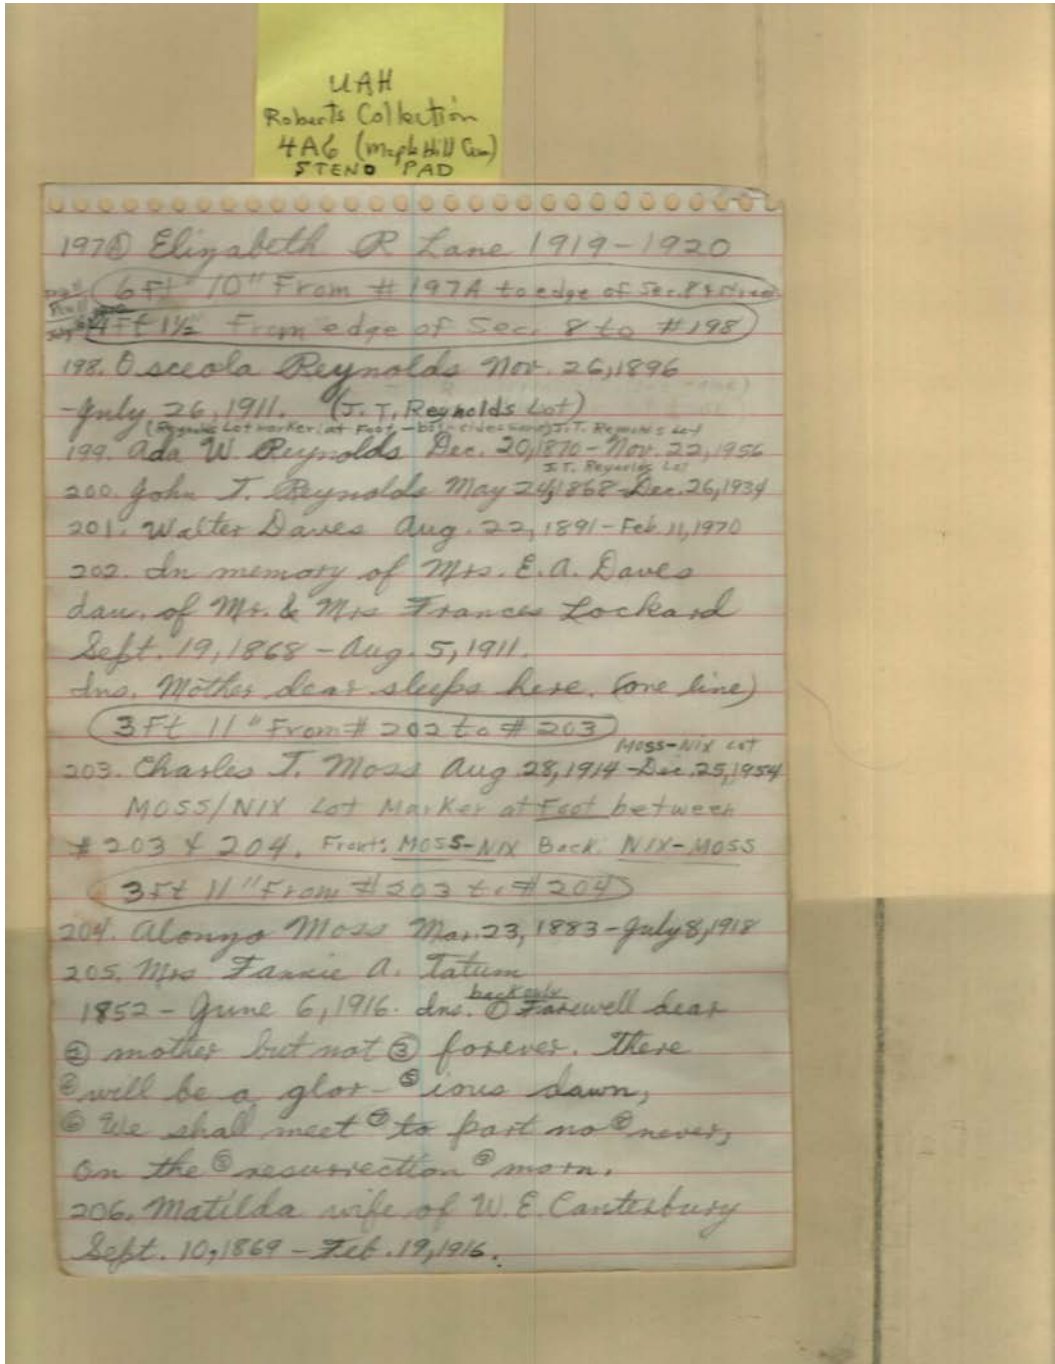 UAH
Roberts Collection
4A6 (Maple Hill Cem)
STENO PAD
197Ⓐ Elizabeth R Lane 1919-1920
6 Ft 10" From # 197A to edge of Sec. 8 &
4 Ft 1½" From edge of Sec. 8 to #198
198. Osceola Reynolds Nov. 26, 1896
-July 26, 1911. (J. T. Reynolds Lot)
(Reynolds Lot marker at Foot - both sides same) J. T. Reynolds Lot
199. Ada W. Reynolds Dec. 20, 1870 - Nov. 22, 1956
J. T. Reynolds Lot
200. John T. Reynolds May 24, 1868 - Dec. 26, 1934
201. Walter Daves Aug. 22, 1891 - Feb. 11, 1970
202. In memory of Mrs. E. A. Daves
dau. of Mr. & Mrs Frances Lockard
Sept. 19, 1868 - Aug. 5, 1911.
Ins. Mother dear sleeps here. (one line)
3 Ft 11" From # 202 to # 203
Moss-Nix Lot
203. Charles T. Moss Aug. 28, 1914 - Dec. 25, 1954
MOSS/NIX Lot Marker at Foot between
# 203 & 204. Front: MOSS-NIX Back: NIX-MOSS
3 Ft 11" From # 203 to # 204
204. Alonzo Moss Mar. 23, 1883 - July 8, 1918
205. Mrs Fannie A. Tatum
back only
1852 - June 6, 1916. Ins. ① Farewell dear
② mother but not ③ forever. There
④ will be a glor- ⑤ ious dawn,
⑥ We shall meet ⑦ to part no ⑧ never,
On the ⑧ resurrection ⑨ morn.
206. Matilda wife of W. E. Canterbury
Sept. 10, 1869 - Feb. 19, 1916.